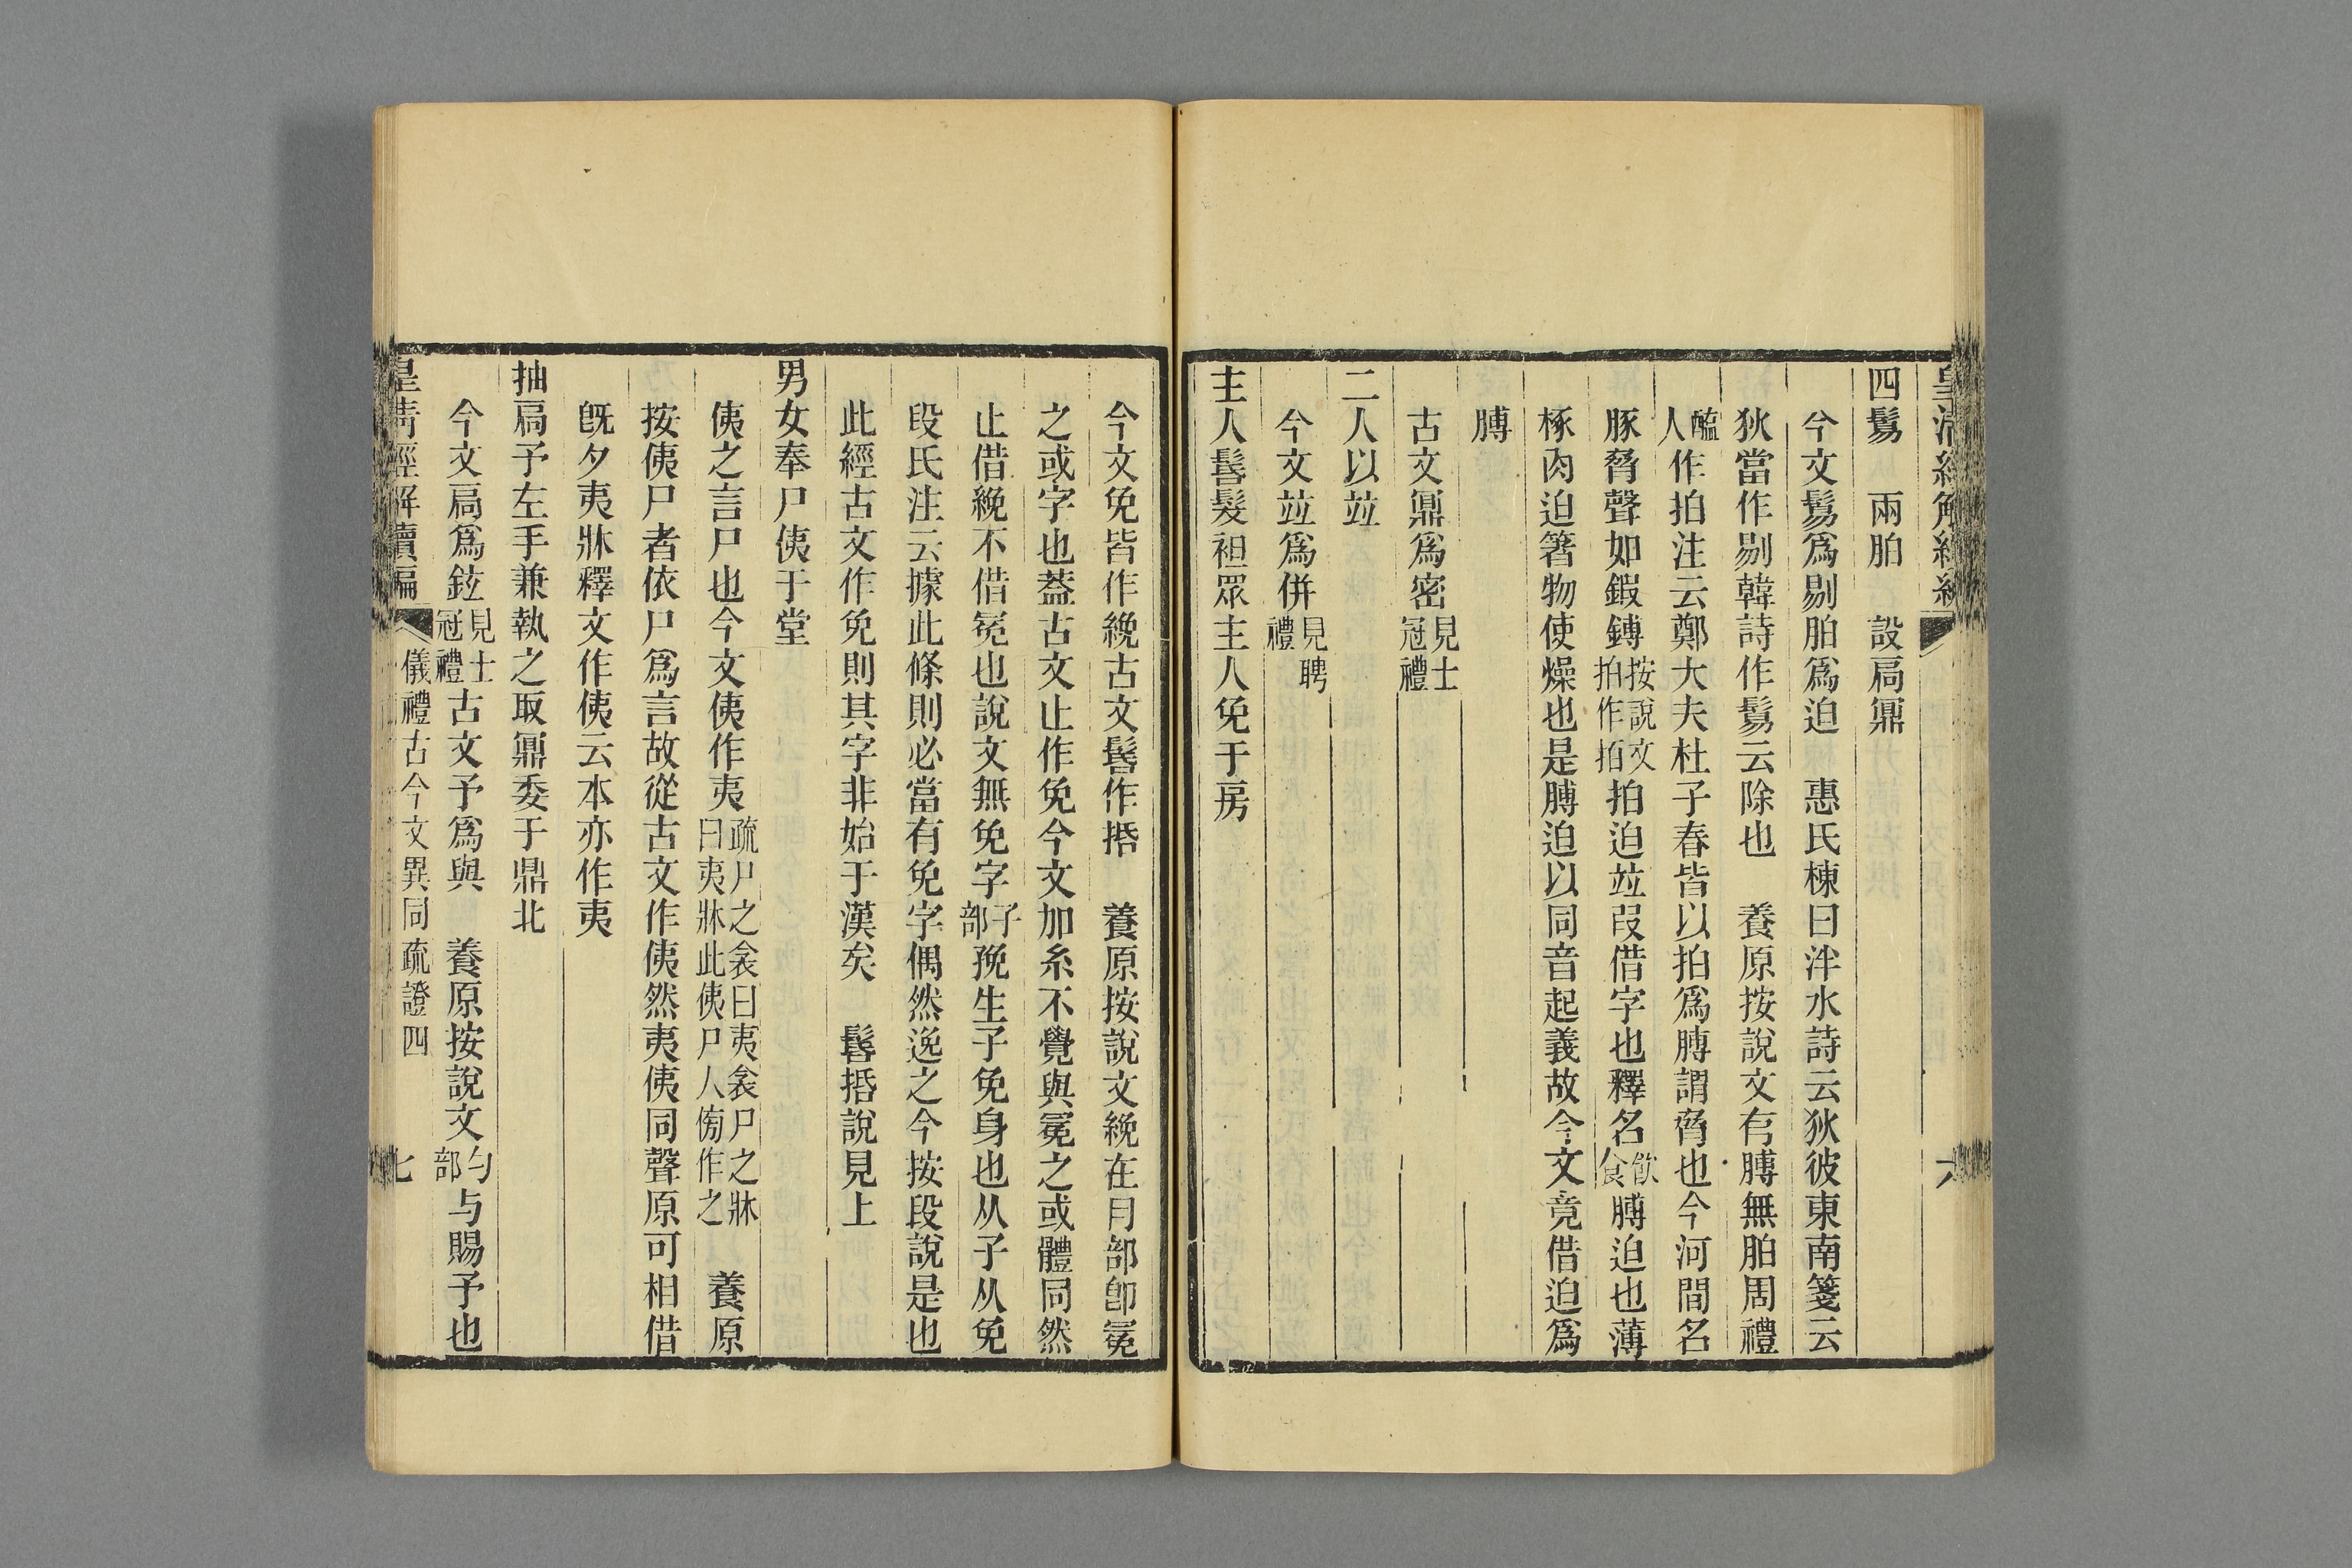 皇清經解續編
六
四鬄　兩胉　設扃鼏
今文鬄爲剔胉爲迫　惠氏棟曰泮水詩云狄彼東南箋云
狄當作剔韓詩作鬄云除也　養原按說文有膊無胉周禮
醢人作拍注云鄭大夫杜子春皆以拍爲膊謂脅也今河間名
豚脅聲如鍜鎛按說文拍作𢫦拍迫竝叚借字也釋名飮食膊迫也薄
椓肉迫箸物使燥也是膊迫以同音起義故今文竟借迫爲
膊
古文鼏爲密見士冠禮
二人以竝
今文竝爲併見聘禮
主人髺髮袒眾主人免于房
今文免皆作絻古文髺作括　養原按說文絻在冃部卽冕
之或字也葢古文止作免今文加糸不覺與冕之或體同然
止借絻不借冕也說文無免字子部㝃生子免身也从子从免
段氏注云據此條則必當有免字偶然逸之今按段說是也
此經古文作免則其字非始于漢矣　髺括說見上
男女奉尸侇于堂
侇之言尸也今文侇作夷疏尸之衾曰夷衾尸之牀曰夷牀此侇尸人傍作之　養原
按侇尸者依尸爲言故從古文作侇然夷侇同聲原可相借
旣夕夷牀釋文作侇云本亦作夷
抽扃予左手兼執之取鼏委于鼎北
今文扃爲鉉見士冠禮古文予爲與　養原按說文勺部与賜予也
皇清經解續編　儀禮古今文異同疏證四　七